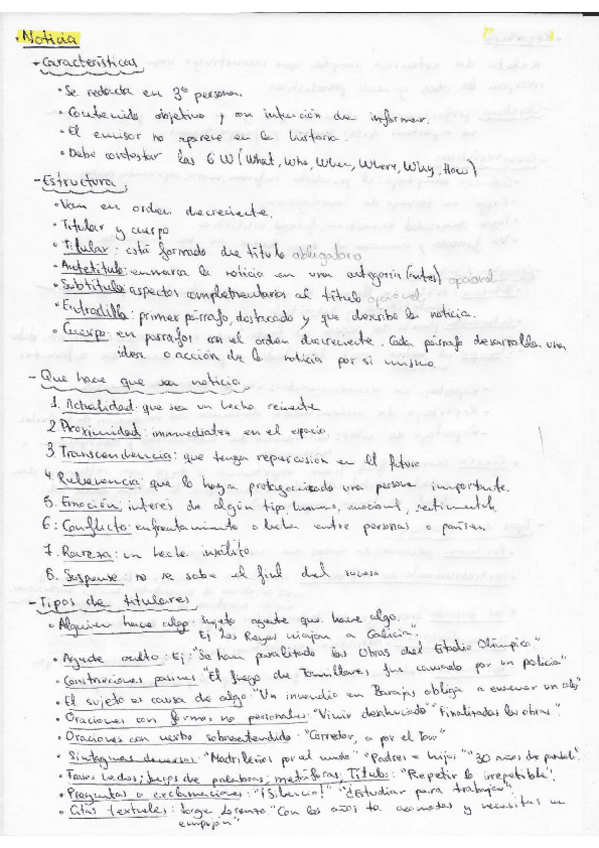 • Noticia
- Características
• Se redacta en 3º persona.
• Contenido objetivo y con intención de informar.
• El emisor no aparece en la historia.
• Debe contestar las 6 W (What, Who, When, Where, Why, How)
- Estructura
• Van en orden decreciente.
• Titular y cuerpo
• Titular: está formado de título obligatorio
• Antetítulo: enmarca la noticia en una categoría (antes) opcional
• Subtítulo: aspectos complementarios al título opcional
• Entradilla: primer párrafo, destacado y que describe la noticia.
• Cuerpo: en parrafos con el orden decreciente. Cada párrafo desarrolla una
idea o acción de la noticia por si misma
- Que hace que sea noticia
1. Actualidad: que sea un hecho reciente
2. Proximidad: inmediatez en el espacio.
3. Transcendencia: que tenga repercusión en el futuro
4. Relevancia: que lo haya protagonizado una persona importante.
5. Emoción: interés de algún tipo, humano, emocional, sentimental.
6: Conflicto: enfrentamiento o lucha entre personas o países.
7. Rareza: un hecho insólito.
8. Suspense: no se sabe el final del suceso
- Tipos de titulares
• Alguien hace algo: Sujeto agente que hace algo.
Ej "Los Reyes viajan a Galicia".
• Agente oculto: Ej: "Se han paralizado las Obras del Estadio Olímpico"
• Construcciones pasivas "El fuego de fue causado por un policía"
• El sujeto es causa de algo "Un incendio en Barajas obliga a un
• Oraciones con formas no personales "Vivir deshuciado" "Finalizadas las obras"
• Oraciones con verbo sobreentendido: "Corredor, a por el Tour"
• Sintagmas diversos: "Madrileños por el mundo" "Padres e hijos" "30 años de
• Frases hechas; juegos de palabras; metáforas; Título: "Repetir lo irrepetible".
• Preguntas o exclamaciones: "¡Silencio!" "¿Estudiar para trabajar"
• Citas textuales: Jorge Lorenzo "Con los años te acomodas y necesitas un
empujón"